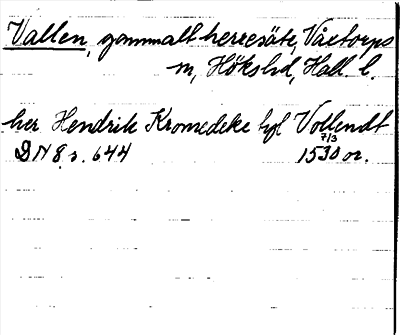 Vallen, gammalt herresäte, Våxtorps
sn, Hökshd, Hall. l.
her Hendrik Kromedeke tyl Vollendt
7/3
DN 8 s. 644 1530 or.